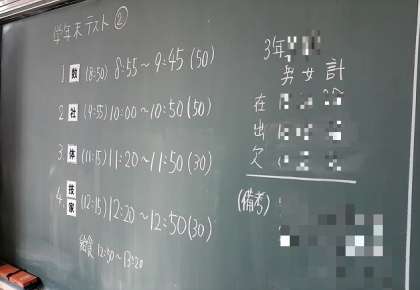 学年末テスト ②
1. 数 (8:50) 8:55～9:45 (50)
2. 社 (9:55) 10:00～10:50 (50)
3. 体 (11:15) 11:20～11:50 (30)
4. 技家 (12:15) 12:20～12:50 (30)
給食 12:50～13:20
3年
男 女 計
在
出
欠
(備考)